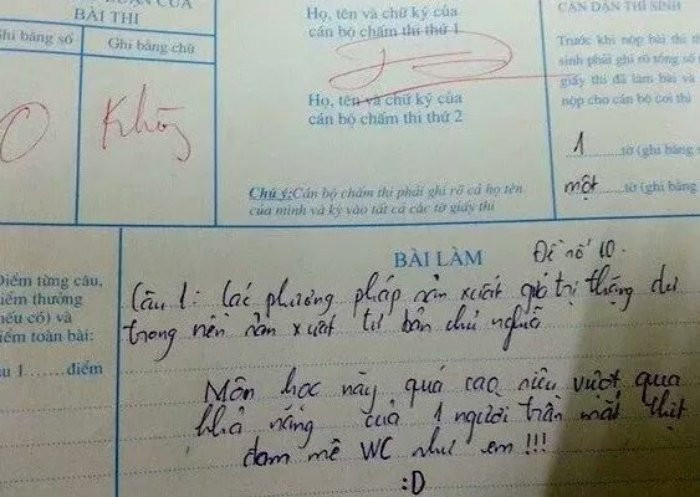 BÀI THI
Ghi bằng số
Ghi bằng chữ
0
Không
Họ, tên và chữ ký của
cán bộ chấm thi thứ 1
Họ, tên và chữ ký của
cán bộ chấm thi thứ 2
Chú ý: Cán bộ chấm thi phải ghi rõ cả họ tên
của mình và ký vào tất cả các tờ giấy thi
CĂN DẶN THÍ SINH
Trước khi nộp bài thi th
sinh phải ghi rõ tổng số t
giấy thi đã làm bài và
nộp cho cán bộ coi thi
1 tờ (ghi bằng s
một tờ (ghi bằng
Điểm từng câu,
điểm thưởng
(nếu có) và
điểm toàn bài:
âu 1......điểm
BÀI LÀM
Đề số 10.
Câu 1: Các phương pháp sản xuất giá trị thặng dư
trong nền sản xuất tư bản chủ nghĩa
Môn học này quá cao siêu vượt qua
khả năng của 1 người trần mắt thịt
đam mê WC như em !!!
:D